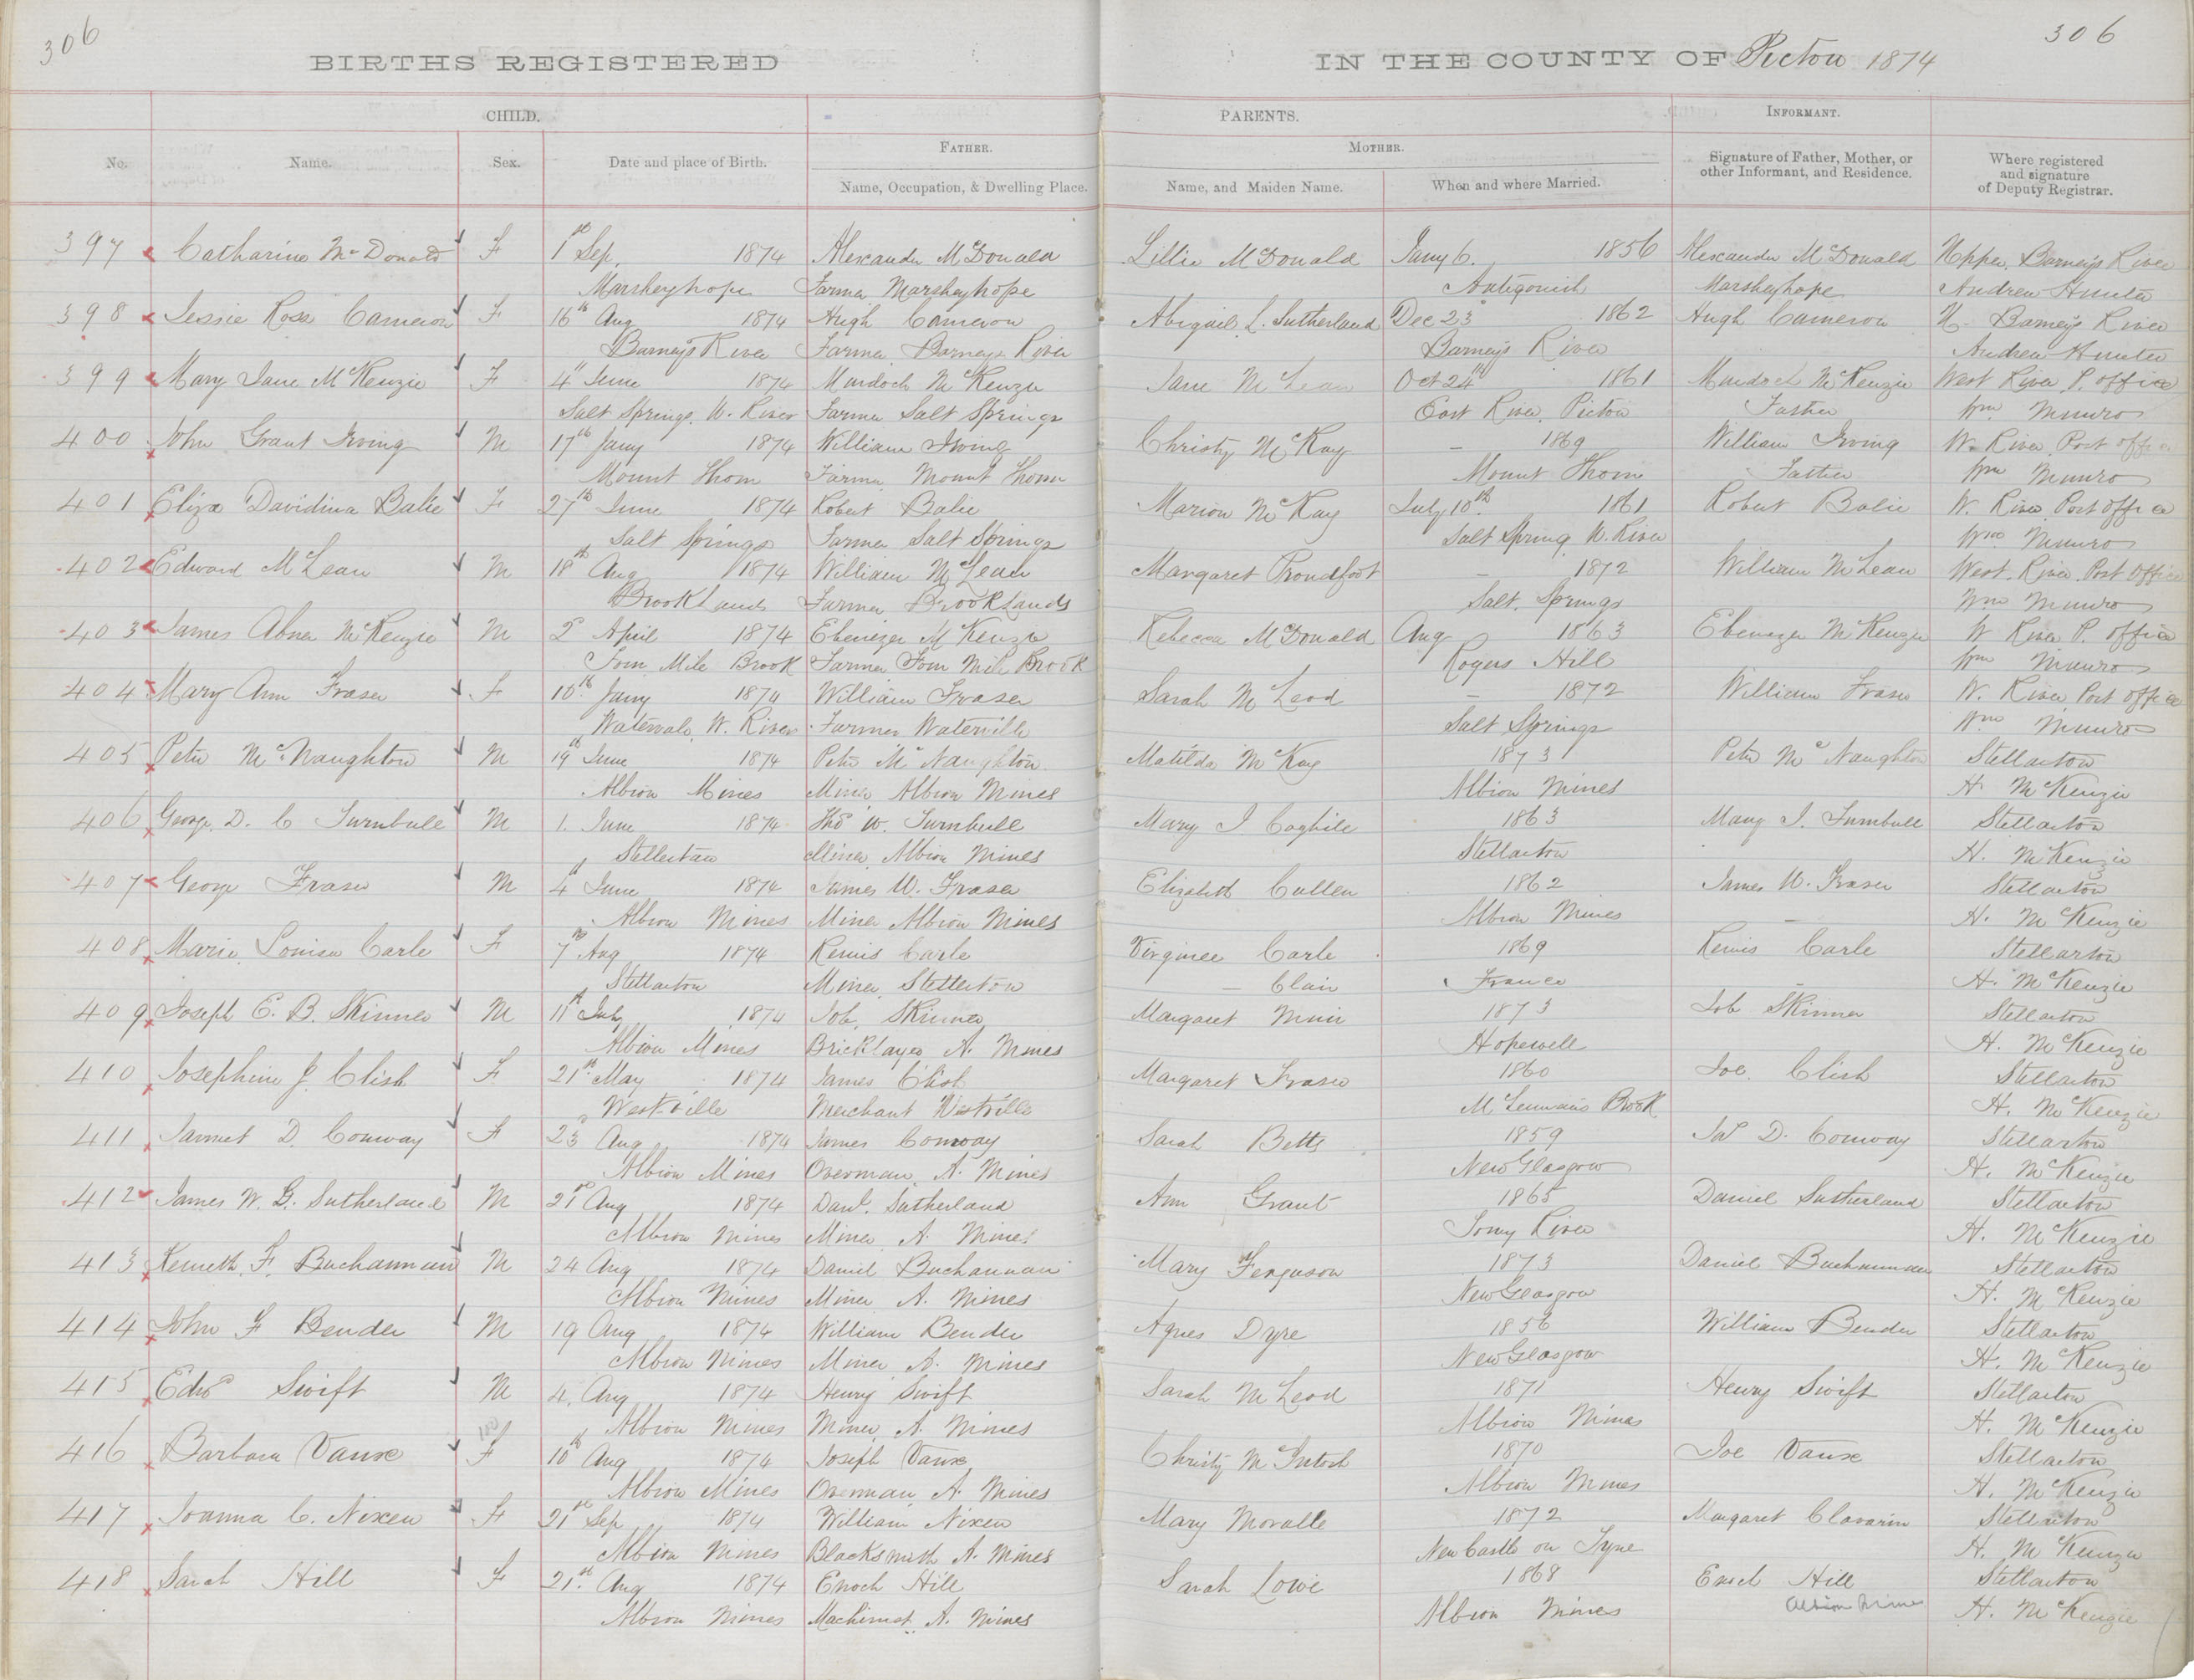 306
306
BIRTHS REGISTERED IN THE COUNTY OF Pictou 1874
CHILD. PARENTS. INFORMANT.
No. Name. Sex. Date and place of Birth. FATHER. MOTHER. Signature of Father, Mother, or other Informant, and Residence. Where registered and signature of Deputy Registrar.
Name, Occupation, & Dwelling Place. Name, and Maiden Name. When and where Married.
397 Catharine McDonald F 1st Sep. 1874 Alexander McDonald Lillie McDonald Jany 6. 1856 Alexander McDonald Upper Barneys River
Marsheyhope Farmer Marsheyhope Antigonish Marsheyhope Andrew Hunter
398 Jessie Rosa Cameron F 16th Aug 1874 Hugh Cameron Abigail L. Sutherland Dec 23 1862 Hugh Cameron U. Barneys River
Barneys River Farmer Barneys River Barneys River Andrew Hunter
399 Mary Jane McKenzie F 4th June 1874 Murdoch McKenzie Jane McLean Oct 24th 1861 Murdoch McKenzie West River P. office
Salt Springs W. River Farmer Salt Springs East River Pictou Father Wm Munro
400 John Grant Irving M 17th Jany 1874 William Irving Christy McKay – 1869 William Irving W. River Post office
Mount Thom Farmer Mount Thom Mount Thom Father Wm Munro
401 Eliza Davidina Balie F 27th June 1874 Robert Balie Marion McKay July 10th 1861 Robert Balie W. River Post office
Salt Springs Farmer Salt Springs Salt Spring W. River Wm Munro
402 Edward McLean M 18th Aug 1874 William McLean Margaret Proudfoot – 1872 William McLean West River Post office
BrookLands Farmer BrookLands Salt Springs Wm Munro
403 James Abner McKenzie M 2d April 1874 Ebenezer McKenzie Rebecca McDonald Aug 1863 Ebenezer McKenzie W River P. office
Four Mile Brook Farmer Four Mile Brook Rogers Hill Wm Munro
404 Mary Ann Fraser F 10th Jany 1874 William Fraser Sarah McLeod – 1872 William Fraser W. River Post office
Watervale W. River Farmer Waterville Salt Springs Wm Munro
405 Peter McNaughton M 19th June 1874 Peter McNaughton Matilda McKay 1873 Peter McNaughton Stellarton
Albion Mines Miner Albion Mines Albion Mines H. McKenzie
406 George D. C Turnbull M 1. June 1874 Thos W. Turnbull Mary J Coghile 1863 Mary J. Turnbull Stellarton
Stellertown Miner Albion Mines Stellarton H. McKenzie
407 George Fraser M 4th June 1874 James W. Fraser Elizabeth Cullen 1862 James W. Fraser Stellarton
Albion Mines Miner Albion Mines Albion Mines – H. McKenzie
408 Marie Louisa Carle F 7th Aug 1874 Remis Carle Virginee Carle 1869 Remis Carle Stellarton
Stellarton Miner Stellerton – Clair France H. McKenzie
409 Joseph E. B. Skinner M 11th July 1874 Job Skinner Margaret Muir 1873 Job Skinner Stellarton
Albion Mines Bricklayer A. Mines Hopewell H. McKenzie
410 Josephine J. Clish F 21st May 1874 James Clish Margaret Fraser 1860 Joe. Clish Stellarton
Westville Merchant Westville McLennans Brook H. McKenzie
411 Jannet D. Conway F 23 Aug 1874 James Conway Sarah Betts 1859 Jas D. Conway Stellarton
Albion Mines Overman A. Mines New Glasgow H. McKenzie
412 James W. G. Sutherland M 21st Aug 1874 Danl. Sutherland Ann Grant 1865 Daniel Sutherland Stellarton
Albion Mines Miner A. Mines Tony River H. McKenzie
413 Kenneth F. Buchannan M 24 Aug 1874 Daniel Buchannan Mary Ferguson 1873 Daniel Buchannan Stellarton
Albion Mines Miner A. Mines New Glasgow H. McKenzie
414 John F Bender M 19 Aug 1874 William Bender Agnes Dyre 1856 William Bender Stellarton
Albion Mines Miner A. Mines New Glasgow H. McKenzie
415 Edwd Swift M 4. Aug 1874 Henry Swift Sarah McLeod 1871 Henry Swift Stellarton
Albion Mines Miner A. Mines Albion Mines H. McKenzie
416 Barbara Vause F 10th Aug 1874 Joseph Vause Christy McIntosh 1870 Joe Vause Stellarton
Albion Mines Overman A. Mines Albion Mines H. McKenzie
417 Joanna C. Nixen F 21st Sep 1874 William Nixen Mary Moralle 1872 Margaret Clavarin Stellarton
Albion Mines Blacksmith A. Mines New Castle on Tyne H. McKenzie
418 Sarah Hill F 21st. Aug 1874 Enoch Hill Sarah Lowe 1868 Enoch Hill Stellarton
Albion Mines Machinest A. Mines Albion Mines Albion Mines H. McKenzie